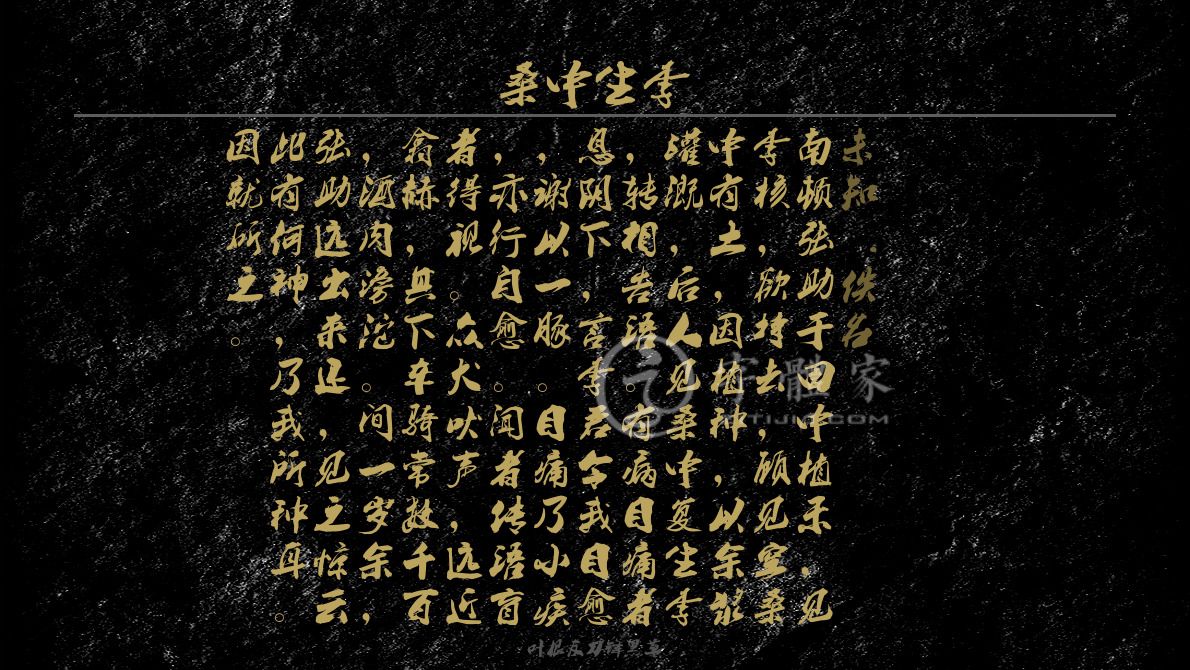 桑中生李
未知 · 佚名
南顿张助于田中植禾，见
李核，欲持去，顾见空桑
中有土，因植种，以余浆
灌溉，后人见桑中复生李
，转相告语。有病目痛者
息阴下，言李君令我目愈
，谢以一豚。目痛乃小疾
，亦行自愈。闻者传语盲
者得视。众犬吠声，远近
翕赫，其下车骑常数千百
，酒肉滂沱。间一岁余，
张助远出来还，见之惊云
此有何神，乃我所种耳。
因就斫之。
字體家
叶根友刀锋黑草